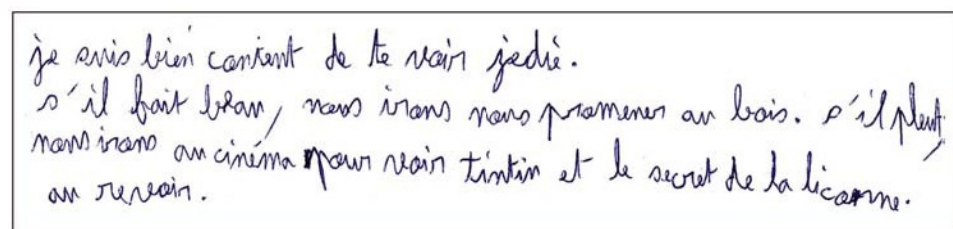 je suis bien content de te voir jedi.
s'il fait beau, nous irons nous promener au bois. s'il pleut,
nous irons au cinéma pour voir tintin et le secret de la licorne.
au revoir.